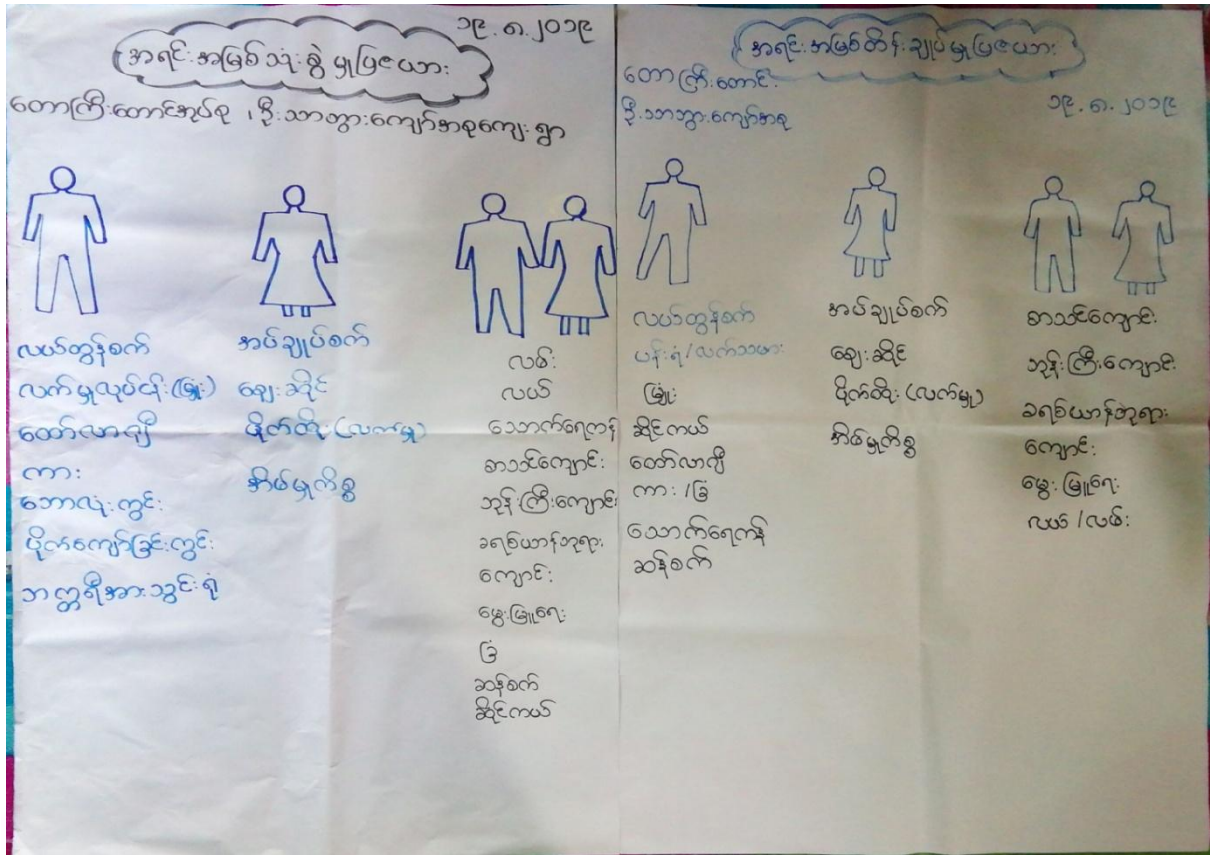 ၁၉.၈.၂၀၁၉
အရင်းအမြစ်သုံးစွဲမှုပြဇယား
တောကြီးတောင်အုပ်စု ၊ ဦးသာထွားကျော်အစုကျေးရွာ
လယ်ထွန်စက်
လက်မှုလုပ်ငန်း (မြှုံး)
ထော်လာဂျီ
ကား
ဘောလုံးကွင်း
ပိုက်ကျော်ခြင်းကွင်း
ဘက္ထရီအားသွင်းရုံ
အပ်ချုပ်စက်
ဈေးဆိုင်
ပိုက်ထိုး (လက်မှု)
အိမ်မှုကိစ္စ
လမ်း
လယ်
သောက်ရေကန်
စာသင်ကျောင်း
ဘုန်းကြီးကျောင်း
ခရစ်ယာန်ဘုရား
ကျောင်း
မွေးမြူရေး
ခြံ
ဆန်စက်
ဆိုင်ကယ်
အရင်းအမြစ်ထိန်းချုပ်မှုပြဇယား
တောကြီးတောင်
ဦးသာထွားကျော်အစု
၁၉.၈.၂၀၁၉
လယ်ထွန်စက်
ပန်းရံ/လက်သမား
မြှုံး
ဆိုင်ကယ်
ထော်လာဂျီ
ကား /ခြံ
သောက်ရေကန်
ဆန်စက်
အပ်ချုပ်စက်
ဈေးဆိုင်
ပိုက်ထိုး (လက်မှု)
အိမ်မှုကိစ္စ
စာသင်ကျောင်း
ဘုန်းကြီးကျောင်း
ခရစ်ယာန်ဘုရား
ကျောင်း
မွေးမြူရေး
လယ်/လမ်း